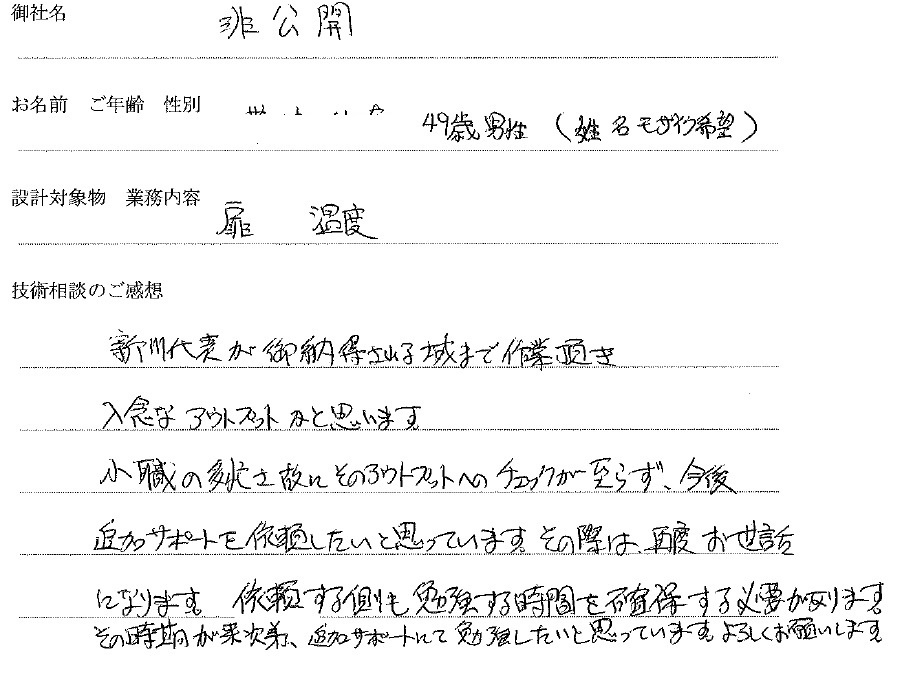 御社名 非公開
お名前 ご年齢 性別 49歳男性 (姓名モザイク希望)
設計対象物 業務内容 扉 温度
技術相談のご感想
新川代表が御納得される域まで作業頂き
入念なアウトプットかと思います
小職の多忙さ故にそのアウトプットへのチェックが至らず、今後
追加サポートを依頼したいと思っています。その際は、再度お世話
になります。依頼する側も勉強する時間を確保する必要があります。
その時期が来次第、追加サポートにて勉強したいと思っています。よろしくお願いします